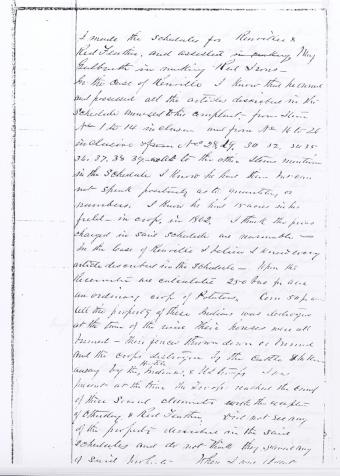 I made the schedules for Renville &
Red Feather, and assisted in making Maj
Galbraith in making Red Irons —
In the case of Renville I know that he owned
and possessed all the articles described in his
schedule annexed to the complaint, from Item
No 1 to 14 inclusive and from No 16 to 26
inclusive No 28, 29, 30 32, 34 35
36. 37. 38 39 as to the other items mentioned
in the schedule I know he had them but can
not speak positively as to quantities or
numbers. I know he had 15 acres in his
field — in crop, in 1862. I think the prices
charged in said schedule are reasonable —
In the case of Renville I believe I know every
article described in the schedule — Upon the
we calculated 250 bus pr acre
an ordinary crop of Potatoes. Corn 50 pr an
all the property of these Indians was destroyed
at the time of the their houses were all
burned — their fences thrown down or burned
and the crops destroyed by the cattle & taken
away by the Hostile Indians, & the troops I was
present at the time the troops reached the land
of these several claimants with the exception
of & Red Feather, Did not see any
of the property described in the said
schedules and do not think they saved any
of said When I was